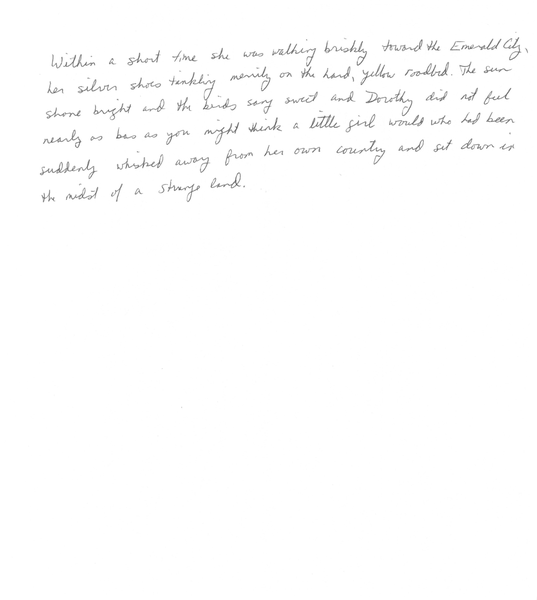 Within a short time she was walking briskly toward the Emerald City,
her silver shoes tinkling merrily on the hard, yellow roadbed. The sun
shone bright and the birds sang sweet and Dorothy did not feel
nearly as bas as you might think a little girl would who had been
suddenly whisked away from her own country and set down in
the midst of a strange land.